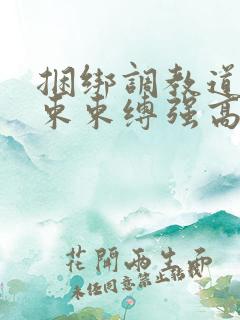 捆绑調教道
束束缚强高
花開兩生面
未经同意禁止转载